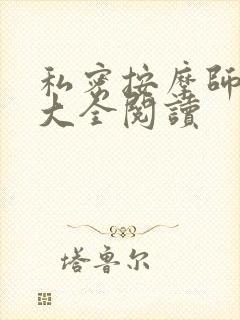 私密按摩師
大全閱讀
塔鲁尔